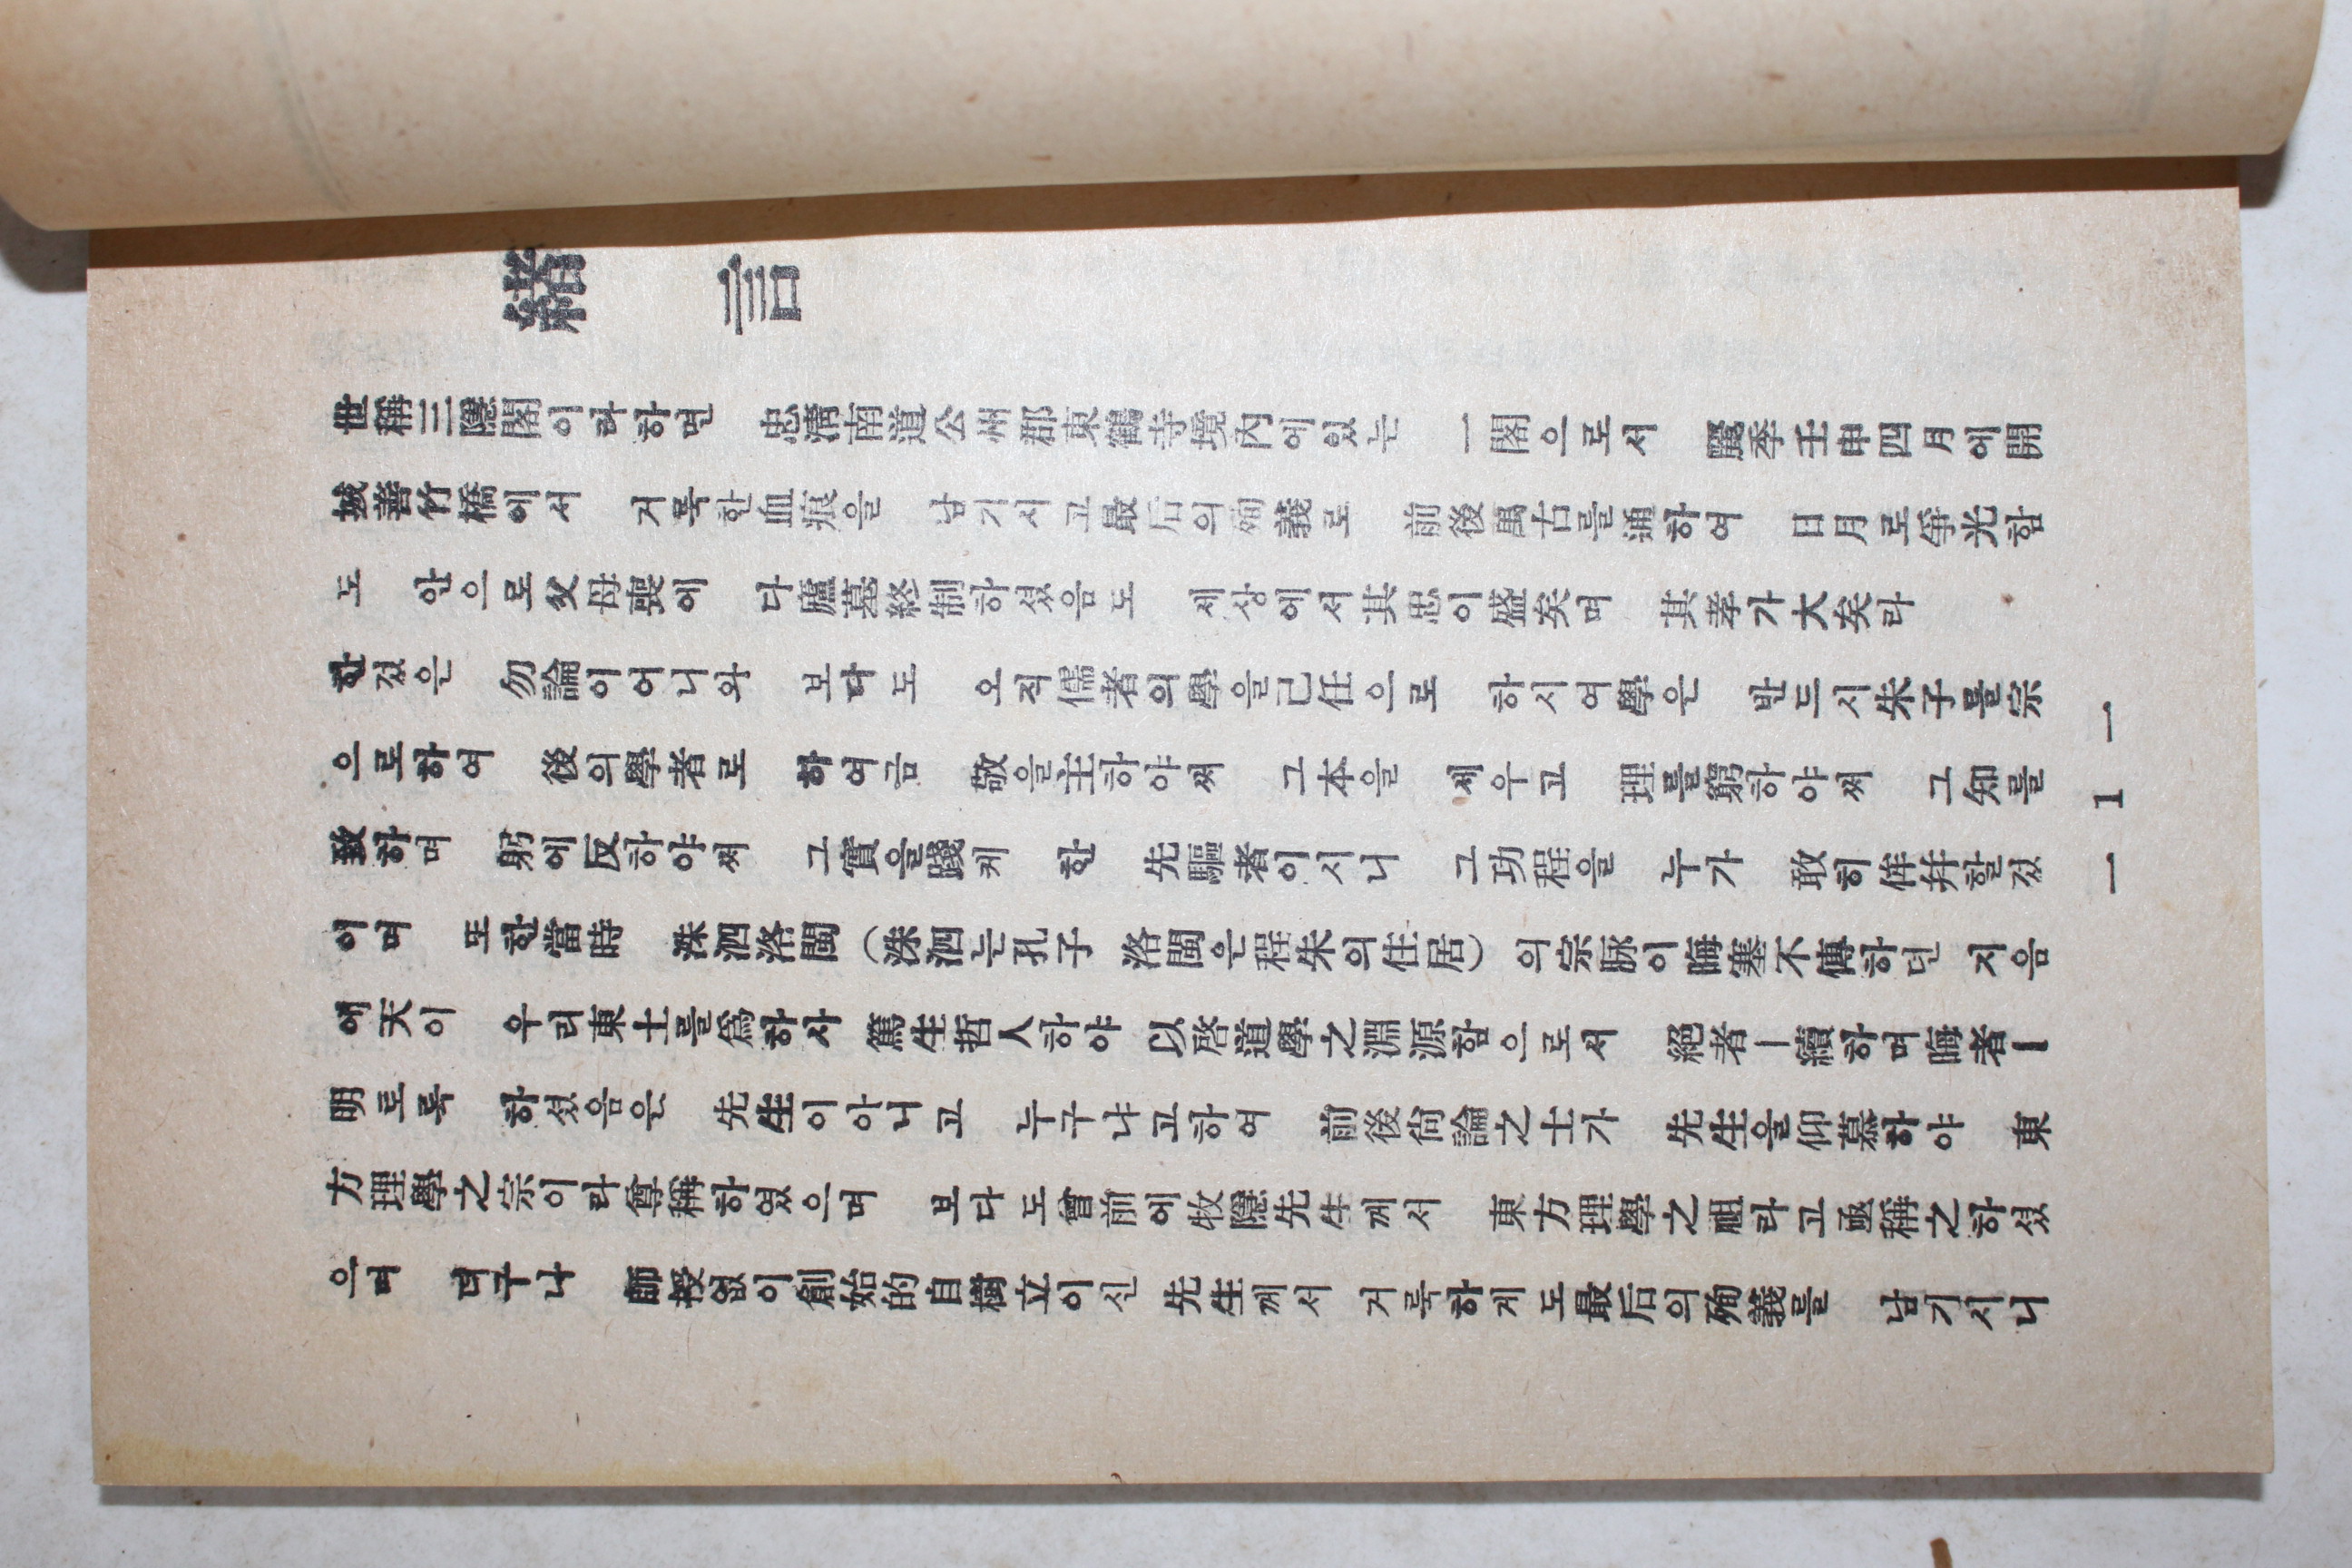 緖言
世稱三隱閣이라하면 忠淸南道公州郡東鶴寺境內에있는 一閣으로서 麗季壬申四月에開
城善竹橋에서 거룩한血痕을 남기시고最后의殉義로 前後萬古를通하여 日月로爭光함
도 안으로父母喪에 다廬墓終制하셨음도 세상에서其忠이盛矣며 其孝가大矣라
한것은 勿論이어니와 보다도 오직儒者의學을己任으로 하시여學은 반드시朱子를宗
으로하여 後의學者로 하여금 敬을主하야써 그本을 세우고 理를窮하야써 그知를
致하며 躬에反하야써 그實을踐케 한 先驅者이시니 그功程을 누가 敢히侔幷할것
이며 또한當時 洙泗洛閩(洙泗는孔子 洛閩은程朱의住居)의宗脉이晦塞不傳하던 지음
에天이 우리東土를爲하사 篤生哲人하야 以啓道學之淵源함으로서 絕者ㅣ續하며晦者ㅣ
明로록 하셨음은 先生이아니고 누구냐고하여 前後尙論之士가 先生을仰慕하야 東
方理學之宗이라尊稱하였으며 보다도曾前에牧隱先生께서 東方理學之祖라고亟稱之하셨
으며 더구나 師授없이創始的自樹立이신 先生께서 거룩하게도最后의殉義를 남기시니
— 1 —